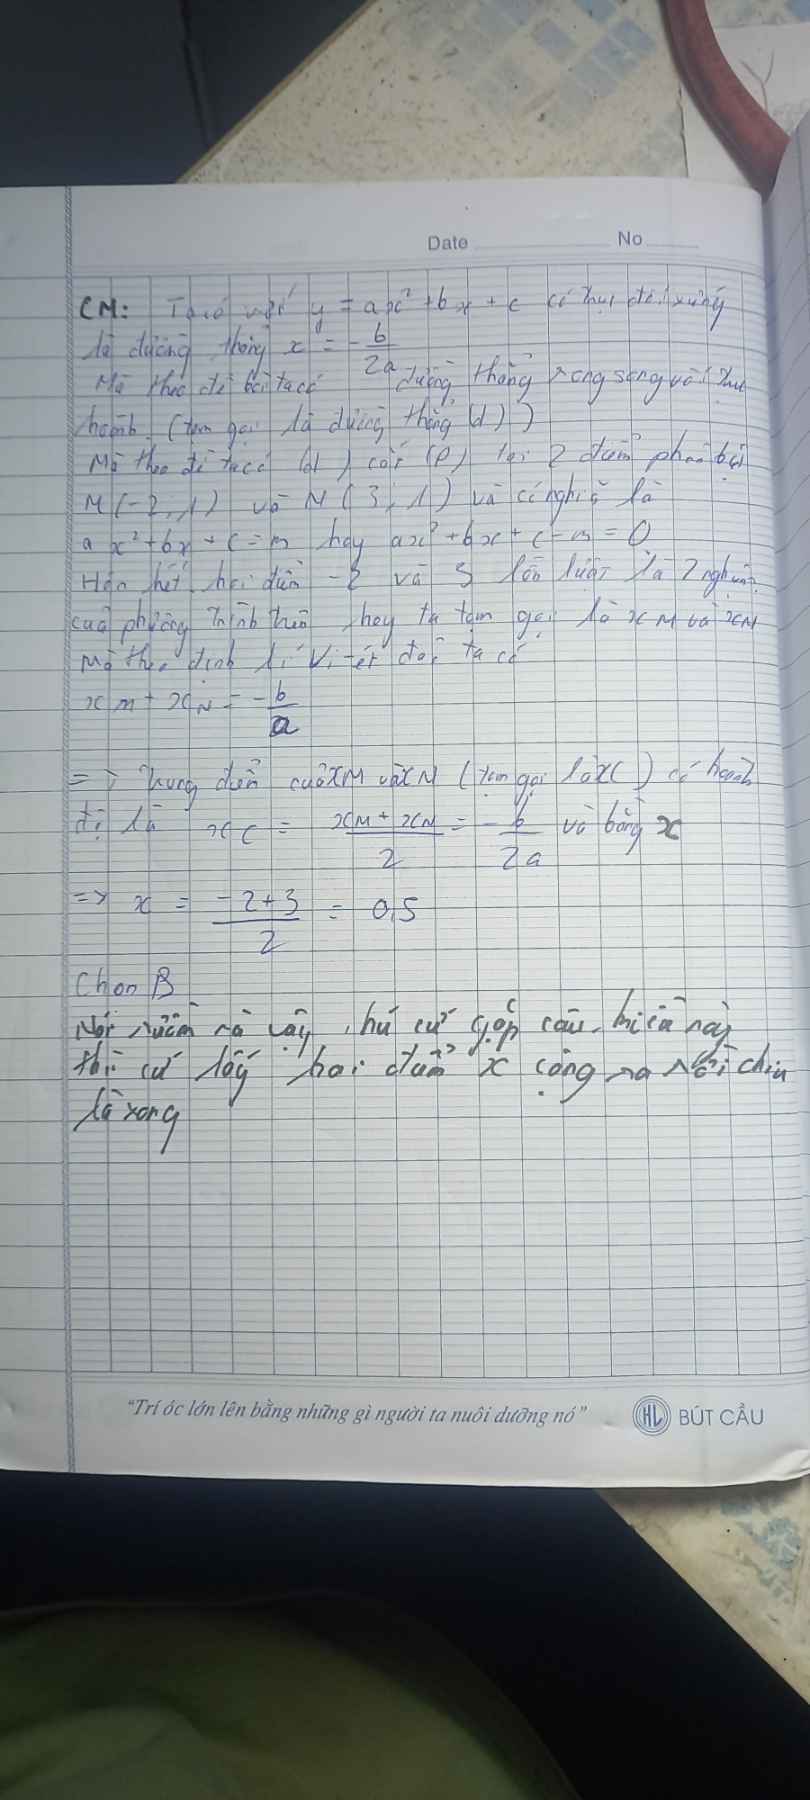 Date No
CM: Ta có với y = ax² + bx + c có trục đối xứng
là đường thẳng x = - b/2a
Mà theo đề bài ta có đường thẳng song song với trục
hoành (tạm gọi là đường thẳng (d))
Mà theo đề ta có (d) cắt (P) tại 2 điểm phân biệt
M(-2; 1) và N(3; 1) và có nghĩa là
ax² + bx + c = m hay ax² + bx + c - m = 0
Hơn hết hai điểm -2 và 3 lần lượt là 2 nghiệm
của phương trình trên hay ta tạm gọi là xM và xN
Mà theo định lí Vi-ét đảo ta có
xm + xN = - b/a
=> Trung điểm của xM và xN (tạm gọi là xC) có hoành
độ là xC = (xM + xN)/2 = - b/2a và bằng x
=> x = (-2+3)/2 = 0,5
Chọn B
Nói rườm rà vậy, chứ cứ gặp câu hiểu này
thì cứ lấy hai điểm x cộng ra rồi chia
là xong
"Trí óc lớn lên bằng những gì người ta nuôi dưỡng nó" HL BÚT CẦU